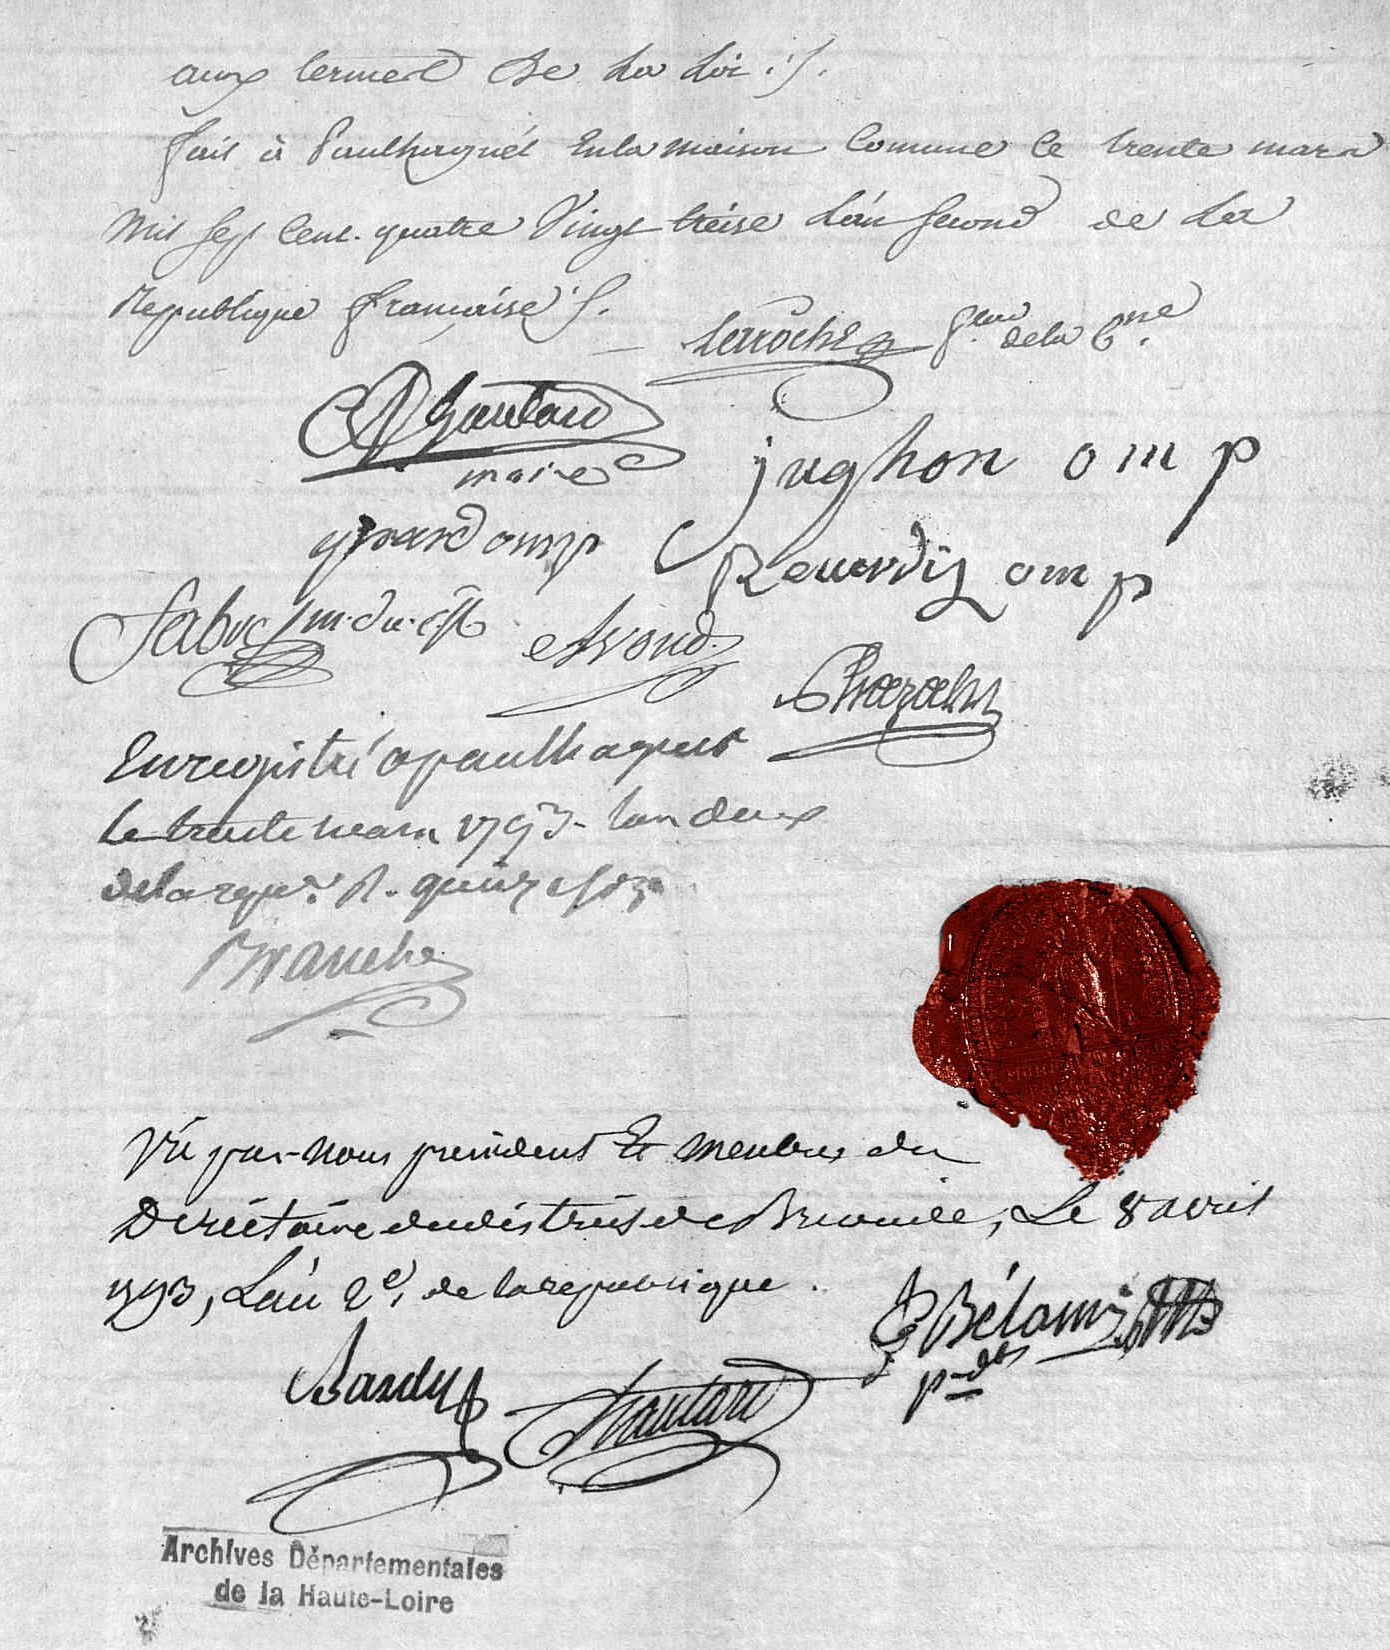 aux termes De La Loi ./.
fait à Paulhaguét En la maison Comune Ce trente mars
Mil Sept Cent quatre Vingt treise L'an Second de La
Republique française ./.
de la Cne
maire
jughon omp
girard omp
Reverdy omp
Avond
Enregistré a paulhaguet
Le trente mars 1793. lan deux
de la
Branche
Vû par nous president Et menbres du
Diréctoire du district de Brioude, Le 8 avril
1793, L'an 2e. de la republique.
Bélamy
pdt
Bardy
Hautard
Archives Départementales
de la Haute-Loire